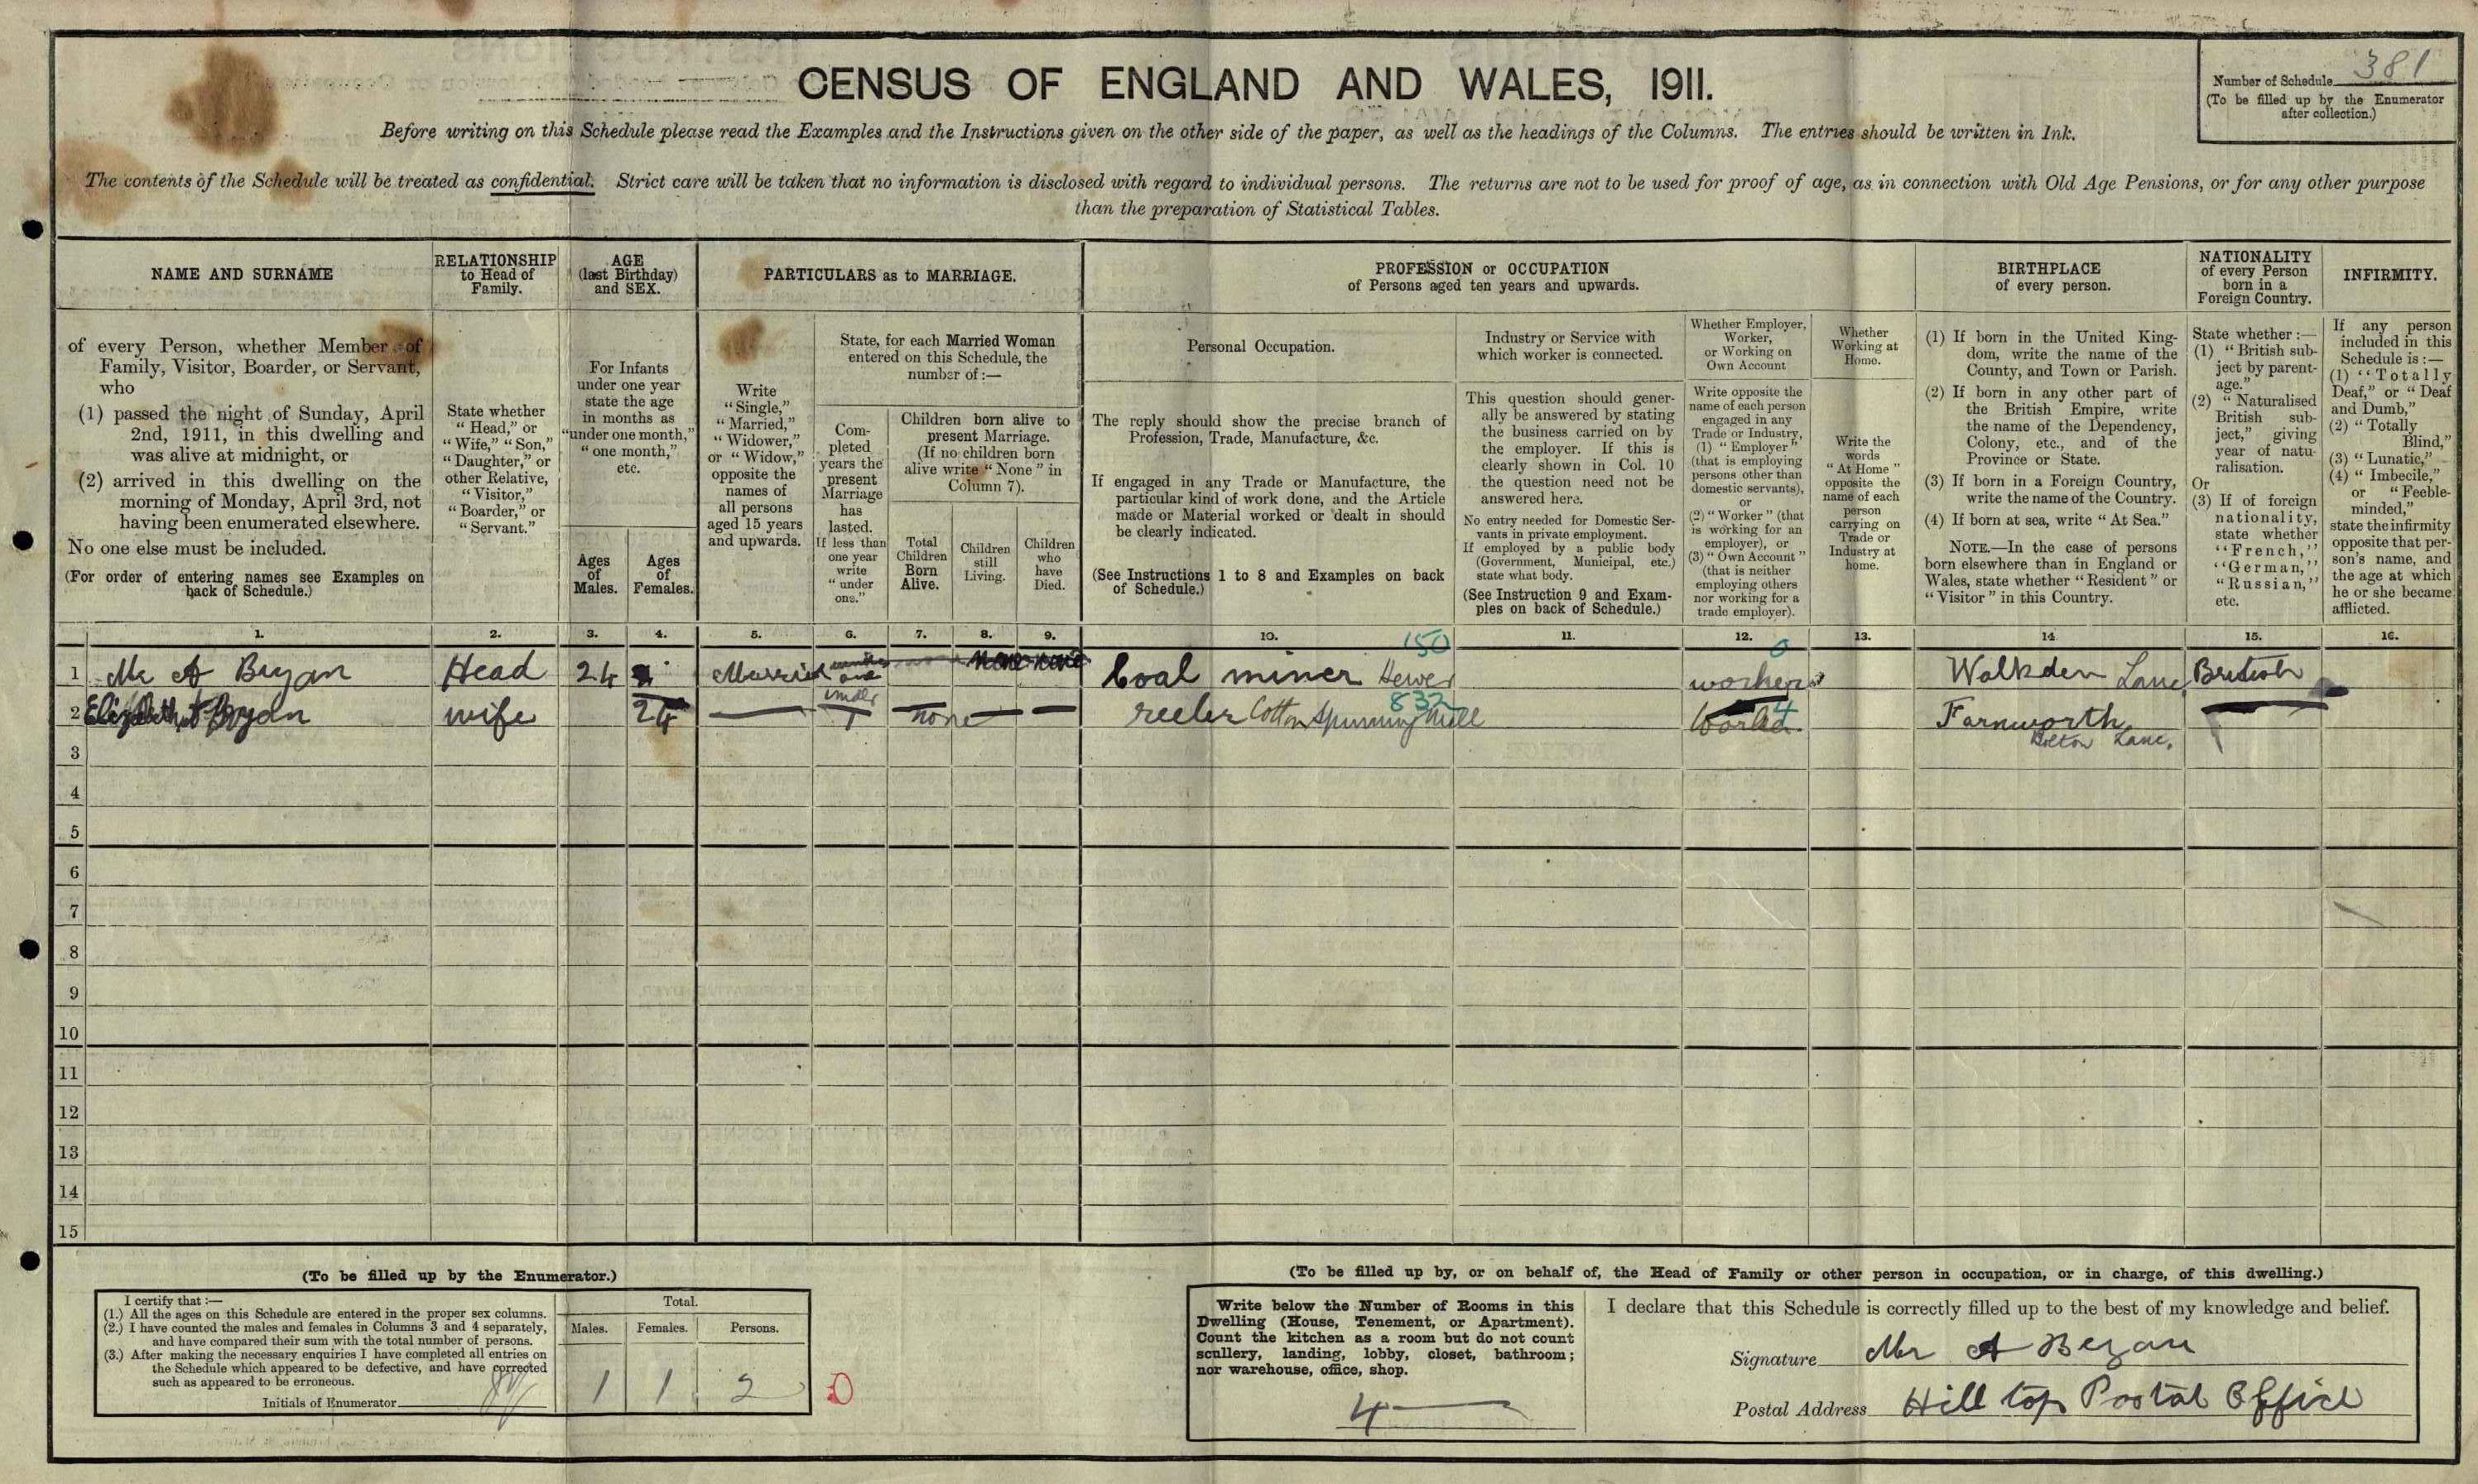 CENSUS OF ENGLAND AND WALES, 1911.
Number of Schedule 381
(To be filled up by the Enumerator
after collection.)
Before writing on this Schedule please read the Examples and the Instructions given on the other side of the paper, as well as the headings of the Columns. The entries should be written in Ink.
The contents of the Schedule will be treated as confidential. Strict care will be taken that no information is disclosed with regard to individual persons. The returns are not to be used for proof of age, as in connection with Old Age Pensions, or for any other purpose
than the preparation of Statistical Tables.
NAME AND SURNAME
of every Person, whether Member of
Family, Visitor, Boarder, or Servant,
who
(1) passed the night of Sunday, April
2nd, 1911, in this dwelling and
was alive at midnight, or
(2) arrived in this dwelling on the
morning of Monday, April 3rd, not
having been enumerated elsewhere.
No one else must be included.
(For order of entering names see Examples on
back of Schedule.)
RELATIONSHIP
to Head of
Family.
State whether
"Head," or
"Wife," "Son,"
"Daughter," or
other Relative,
"Visitor,"
"Boarder," or
"Servant."
AGE
(last Birthday)
and SEX.
For Infants
under one year
state the age
in months as
"under one month,"
"one month,"
etc.
Ages
of
Males.
Ages
of
Females.
PARTICULARS as to MARRIAGE.
Write
"Single,"
"Married,"
"Widower,"
or "Widow,"
opposite the
names of
all persons
aged 15 years
and upwards.
State, for each Married Woman
entered on this Schedule, the
number of:—
Com-
pleted
years the
present
Marriage
has
lasted.
If less than
one year
write
"under
one."
Children born alive to
present Marriage.
(If no children born
alive write "None" in
Column 7).
Total
Children
Born
Alive.
Children
still
Living.
Children
who
have
Died.
PROFESSION or OCCUPATION
of Persons aged ten years and upwards.
Personal Occupation.
The reply should show the precise branch of
Profession, Trade, Manufacture, &c.
If engaged in any Trade or Manufacture, the
particular kind of work done, and the Article
made or Material worked or dealt in should
be clearly indicated.
(See Instructions 1 to 8 and Examples on back
of Schedule.)
Industry or Service with
which worker is connected.
This question should gener-
ally be answered by stating
the business carried on by
the employer. If this is
clearly shown in Col. 10
the question need not be
answered here.
No entry needed for Domestic Ser-
vants in private employment.
If employed by a public body
(Government, Municipal, etc.)
state what body.
(See Instruction 9 and Exam-
ples on back of Schedule.)
Whether Employer,
Worker,
or Working on
Own Account
Write opposite the
name of each person
engaged in any
Trade or Industry,
(1) "Employer"
(that is employing
persons other than
domestic servants),
or
(2) "Worker" (that
is working for an
employer), or
(3) "Own Account"
(that is neither
employing others
nor working for a
trade employer).
Whether
Working at
Home.
Write the
words
"At Home"
opposite the
name of each
person
carrying on
Trade or
Industry at
home.
BIRTHPLACE
of every person.
(1) If born in the United King-
dom, write the name of the
County, and Town or Parish.
(2) If born in any other part of
the British Empire, write
the name of the Dependency,
Colony, etc., and of the
Province or State.
(3) If born in a Foreign Country,
write the name of the Country.
(4) If born at sea, write "At Sea."
NOTE.—In the case of persons
born elsewhere than in England or
Wales, state whether "Resident" or
"Visitor" in this Country.
NATIONALITY
of every Person
born in a
Foreign Country.
State whether:—
(1) "British sub-
ject by parent-
age."
(2) "Naturalised
British sub-
ject," giving
year of natu-
ralisation.
Or
(3) If of foreign
nationality,
state whether
"French,"
"German,"
"Russian,"
etc.
INFIRMITY.
If any person
included in this
Schedule is:—
(1) "Totally
Deaf," or "Deaf
and Dumb,"
(2) "Totally
Blind,"
(3) "Lunatic,"
(4) "Imbecile,"
or "Feeble-
minded,"
state the infirmity
opposite that per-
son's name, and
the age at which
he or she became
afflicted.
1. 2. 3. 4. 5. 6. 7. 8. 9. 10. 11. 12. 13. 14 15. 16.
150 0
1 Mr A Bryan Head 24 Married under one none none none Coal miner Hewer worker Walkden Lanc British
832 4
2 Elizabeth Bryan wife 24 — under 1 none — — reeler Cotton Spinning Mill Farnworth
Bolton Lanc.
3
4
5
6
7
8
9
10
11
12
13
14
15
(To be filled up by the Enumerator.)
I certify that:—
(1.) All the ages on this Schedule are entered in the proper sex columns.
(2.) I have counted the males and females in Columns 3 and 4 separately,
and have compared their sum with the total number of persons.
(3.) After making the necessary enquiries I have completed all entries on
the Schedule which appeared to be defective, and have corrected
such as appeared to be erroneous.
Initials of Enumerator
Total.
Males. Females. Persons.
1 1 2 0
(To be filled up by, or on behalf of, the Head of Family or other person in occupation, or in charge, of this dwelling.)
Write below the Number of Rooms in this
Dwelling (House, Tenement, or Apartment).
Count the kitchen as a room but do not count
scullery, landing, lobby, closet, bathroom;
nor warehouse, office, shop.
4
I declare that this Schedule is correctly filled up to the best of my knowledge and belief.
Signature Mr A Bryan
Postal Address Hill top Postal Office